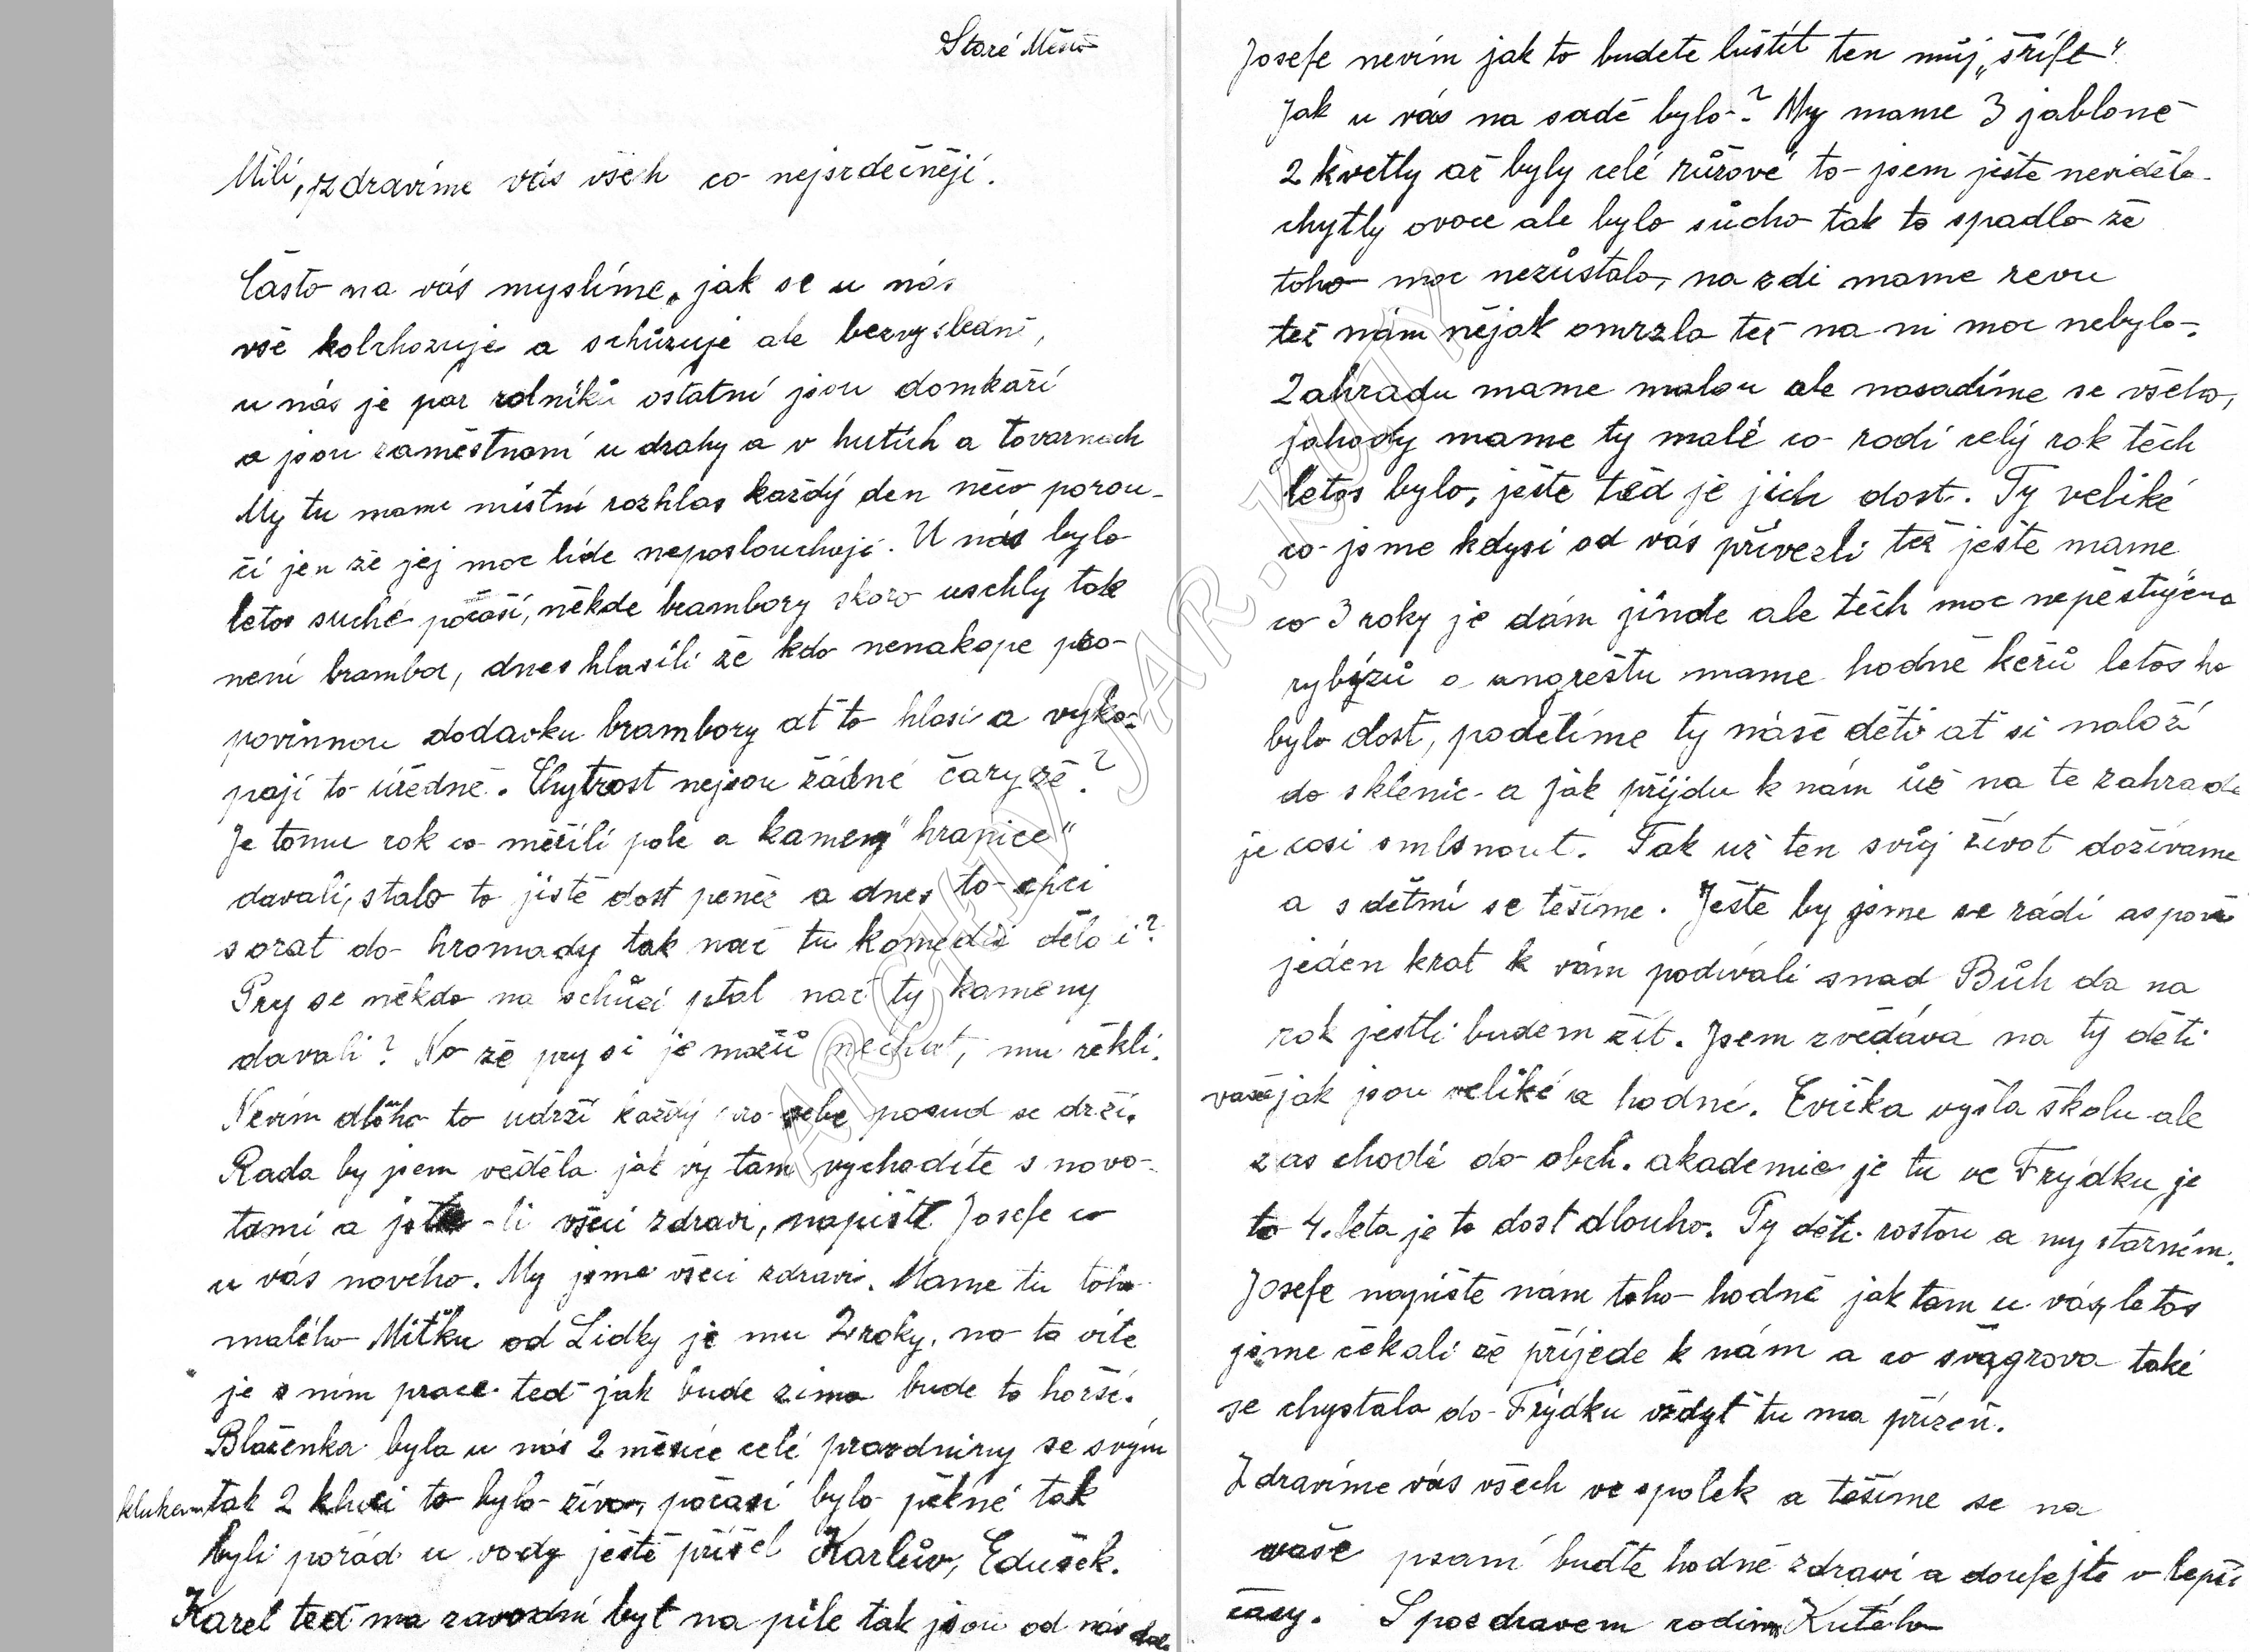 Staré Město
Milí, zdravíme vás všech co nejsrdečněji.
Často na vás myslíme, jak se u nás
vše kolchozuje a schůzuje ale bezvysledně,
u nás je par rolníků ostatní jsou domkaři
a jsou zaměstnaní u drahy a v hutích a tovarnach
My tu mame místní rozhlas každý den něco porou-
čí jen že jej moc lide neposlouchají. U nás bylo
letos suché počasí, někde brambory skoro uschly tak
není brambor, dnes hlasili že kdo nenakope pro-
povinnou dodavku brambory ať to hlasi a vyko-
pají to úředně. Chytrost nejsou žádné čary že?
Je tomu rok co měřili pole a kameny "hranice"
davali, stalo to jistě dost peněz a dnes to chci
sorat do hromady tak nač tu komedii dělali?
Pry se někdo na schůzi ptal nač ty kameny
davali? No že pry si je možů nechat, mu řekli.
Nevím dlóho to udrží každý pro sebe posud se drží.
Rada by jsem věděla jak vy tam vychodíte s novo-
tami a jste-li všeci zdravi, napište Josefe co
u vás nového. My jsme všeci zdravi. Mame tu toho
malého Miťku od Lidky je mu 2 roky, no to víte
je s ním prace teď jak bude zima bude to horší.
Blaženka byla u nás 2 měsíce celé prazdniny se svým
klukem tak 2 kluci to bylo živo, počasí bylo pěkné tak
byli pořád u vody ještě přišel Karlův, Edušek.
Karel teď ma zavodní byt na pile tak jsou od nás dál
Josefe nevím jak to budete luštit ten můj „šrift"
Jak u vás na sadě bylo? My mame 3 jabloně
2 kvetly až byly celé růžové to jsem ještě neviděla
chytly ovoce ale bylo sůcho tak to spadlo že
toho moc nezůstalo, na zdi mame revu
též nám nějak omrzla též na ni moc nebylo.
Zahradu mame malou ale nasadíme se všeho,
jahody mame ty malé co rodí celý rok těch
letos bylo, ještě teď je jich dost. Ty veliké
co jsme kdysi od vás přivezli též ještě mame
co 3 roky je dám jinde ale těch moc nepěstujeme
rybízů a angreštu mame hodně keřů letos ho
bylo dost, podělíme ty náše děti ať si naloží
do sklenic a jak příjdu k nám úž na te zahradě
je cosi smlsnout. Tak už ten svůj život dožívame
a s dětmi se těšíme. Ještě by jsme se rádi aspoň
jeden krat k vám podívali snad Bůh da na
rok jestli budem žít. Jsem zvědává na ty děti
vaše jak jsou veliké a hodné. Evička vyšla školu ale
zas chodí do obch. akademie je tu ve Frýdku je
to 4. leta je to dost dlouho. Ty děti rostou a my starném.
Josefe napište nám toho hodně jak tam u vás, letos
jsme čekali že příjede k nám a co svagrova také
se chystala do Frýdku vždyť tu ma přízeň.
Zdravíme vás všech ve spolek a těšíme se na
vaše psaní buďte hodně zdraví a doufejte v lepší
časy. S pozdravem rodina Kutého